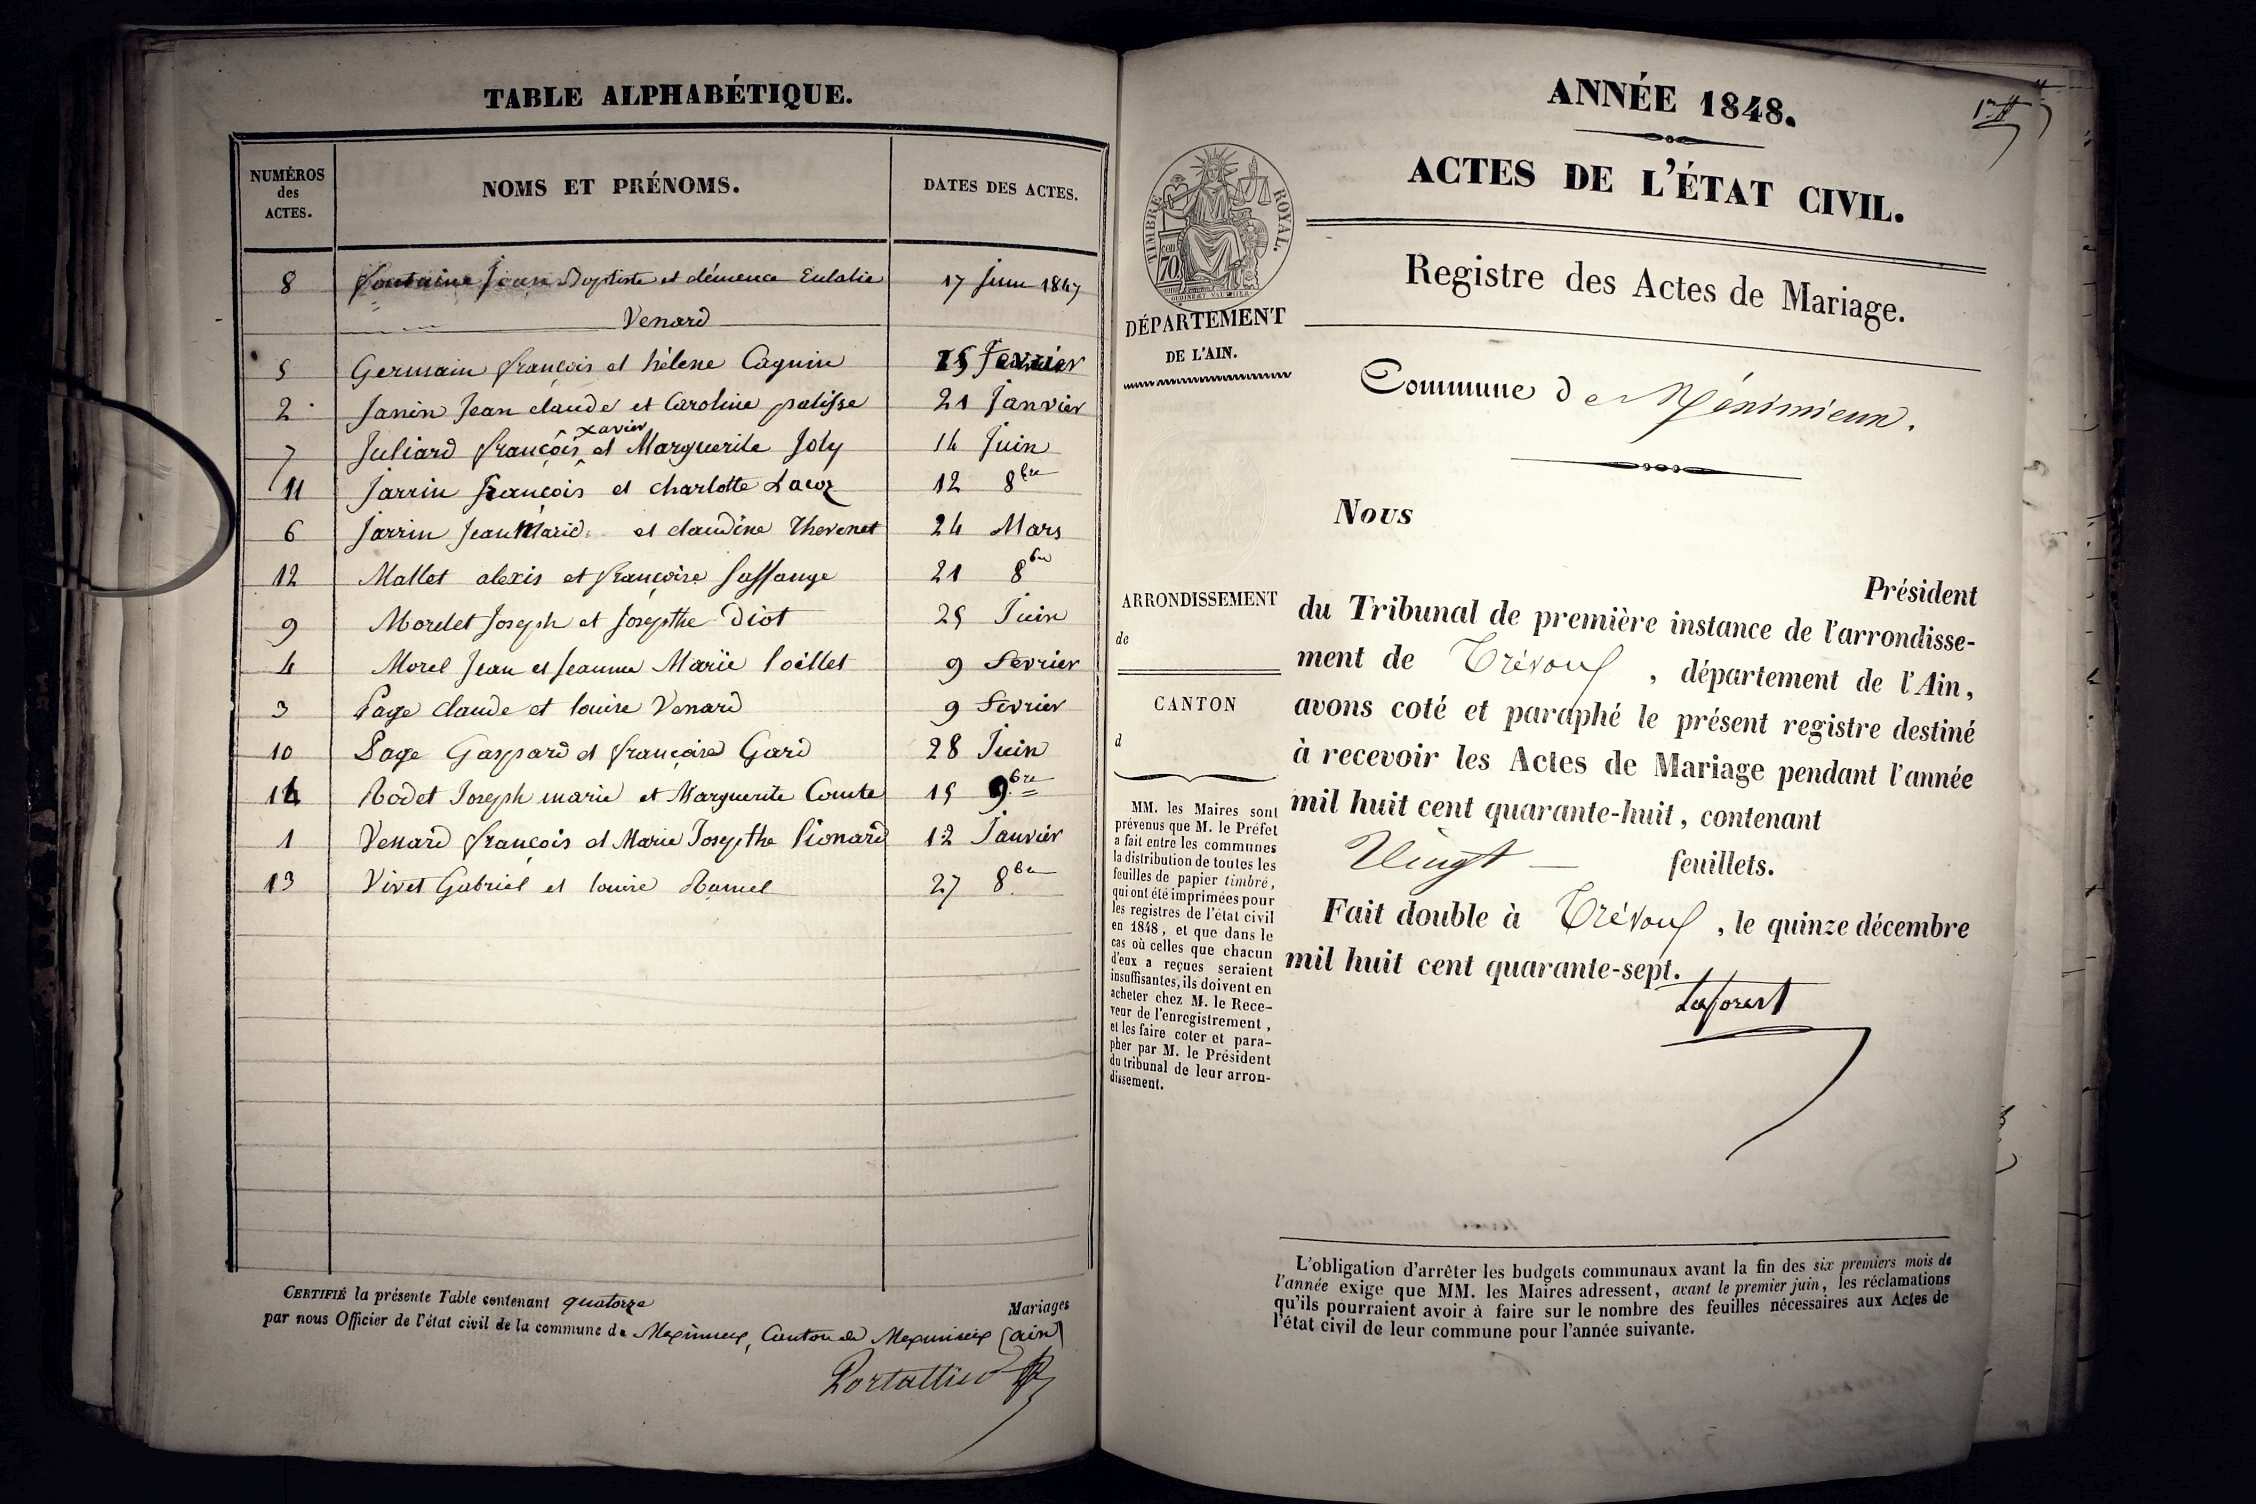 TABLE ALPHABÉTIQUE.
NUMÉROS
des
ACTES.
NOMS ET PRÉNOMS.
DATES DES ACTES.
8 Fontaine Jean Baptiste et clémence Eulalie 17 Juin 1847
Venard
5 Germain françois et hélene Cagnin 15 Fevrier
2 Janin Jean claude et Caroline palisse 21 Janvier
xavier
7 Juliard françois et Marguerite Joly 14 Juin
11 Jarrin françois et charlotte Lacoz 12 8bre
6 Jarrin Jean Marie et claudine Thevenet 24 Mars
12 Mallet alexis et françoise 21 8bre
9 Mordet Joseph et Josepthe Diot 25 Juin
4 Morel Jean et Jeanne Marie 9 Fevrier
3 Page claude et louise Venard 9 Fevrier
10 Page Gaspard et françoise Gard 28 Juin
14 Rodet Joseph marie et Marguerite Comte 15 9bre
1 Venard françois et Marie Josepthe Pionard 12 Janvier
13 Vivet Gabriel et louise Ramel 27 8bre
CERTIFIÉ la présente Table contenant quatorze Mariages
par nous Officier de l'état civil de la commune de Meximieux, Canton de Meximieux (ain)
Portallier
ANNÉE 1848.
1er
ACTES DE L'ÉTAT CIVIL.
Registre des Actes de Mariage.
TIMBRE ROYAL.
70
DÉPARTEMENT
DE L'AIN.
Commune de Méximieux.
Nous
Président
du Tribunal de première instance de l'arrondisse-
ment de Trévoux, département de l'Ain,
avons coté et paraphé le présent registre destiné
à recevoir les Actes de Mariage pendant l'année
mil huit cent quarante-huit, contenant
Vingt feuillets.
Fait double à Trévoux, le quinze décembre
mil huit cent quarante-sept.
Laforest
ARRONDISSEMENT
de
CANTON
d
MM. les Maires sont
prévenus que M. le Préfet
a fait entre les communes
la distribution de toutes les
feuilles de papier timbré,
qui ont été imprimées pour
les registres de l'état civil
en 1848, et que dans le
cas où celles que chacun
d'eux a reçues seraient
insuffisantes, ils doivent en
acheter chez M. le Rece-
veur de l'enregistrement,
et les faire coter et para-
pher par M. le Président
du tribunal de leur arron-
dissement.
L'obligation d'arrêter les budgets communaux avant la fin des six premiers mois de
l'année exige que MM. les Maires adressent, avant le premier juin, les réclamations
qu'ils pourraient avoir à faire sur le nombre des feuilles nécessaires aux Actes de
l'état civil de leur commune pour l'année suivante.